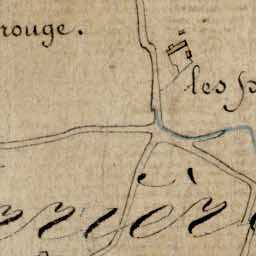 rouge.
les p
rrièr